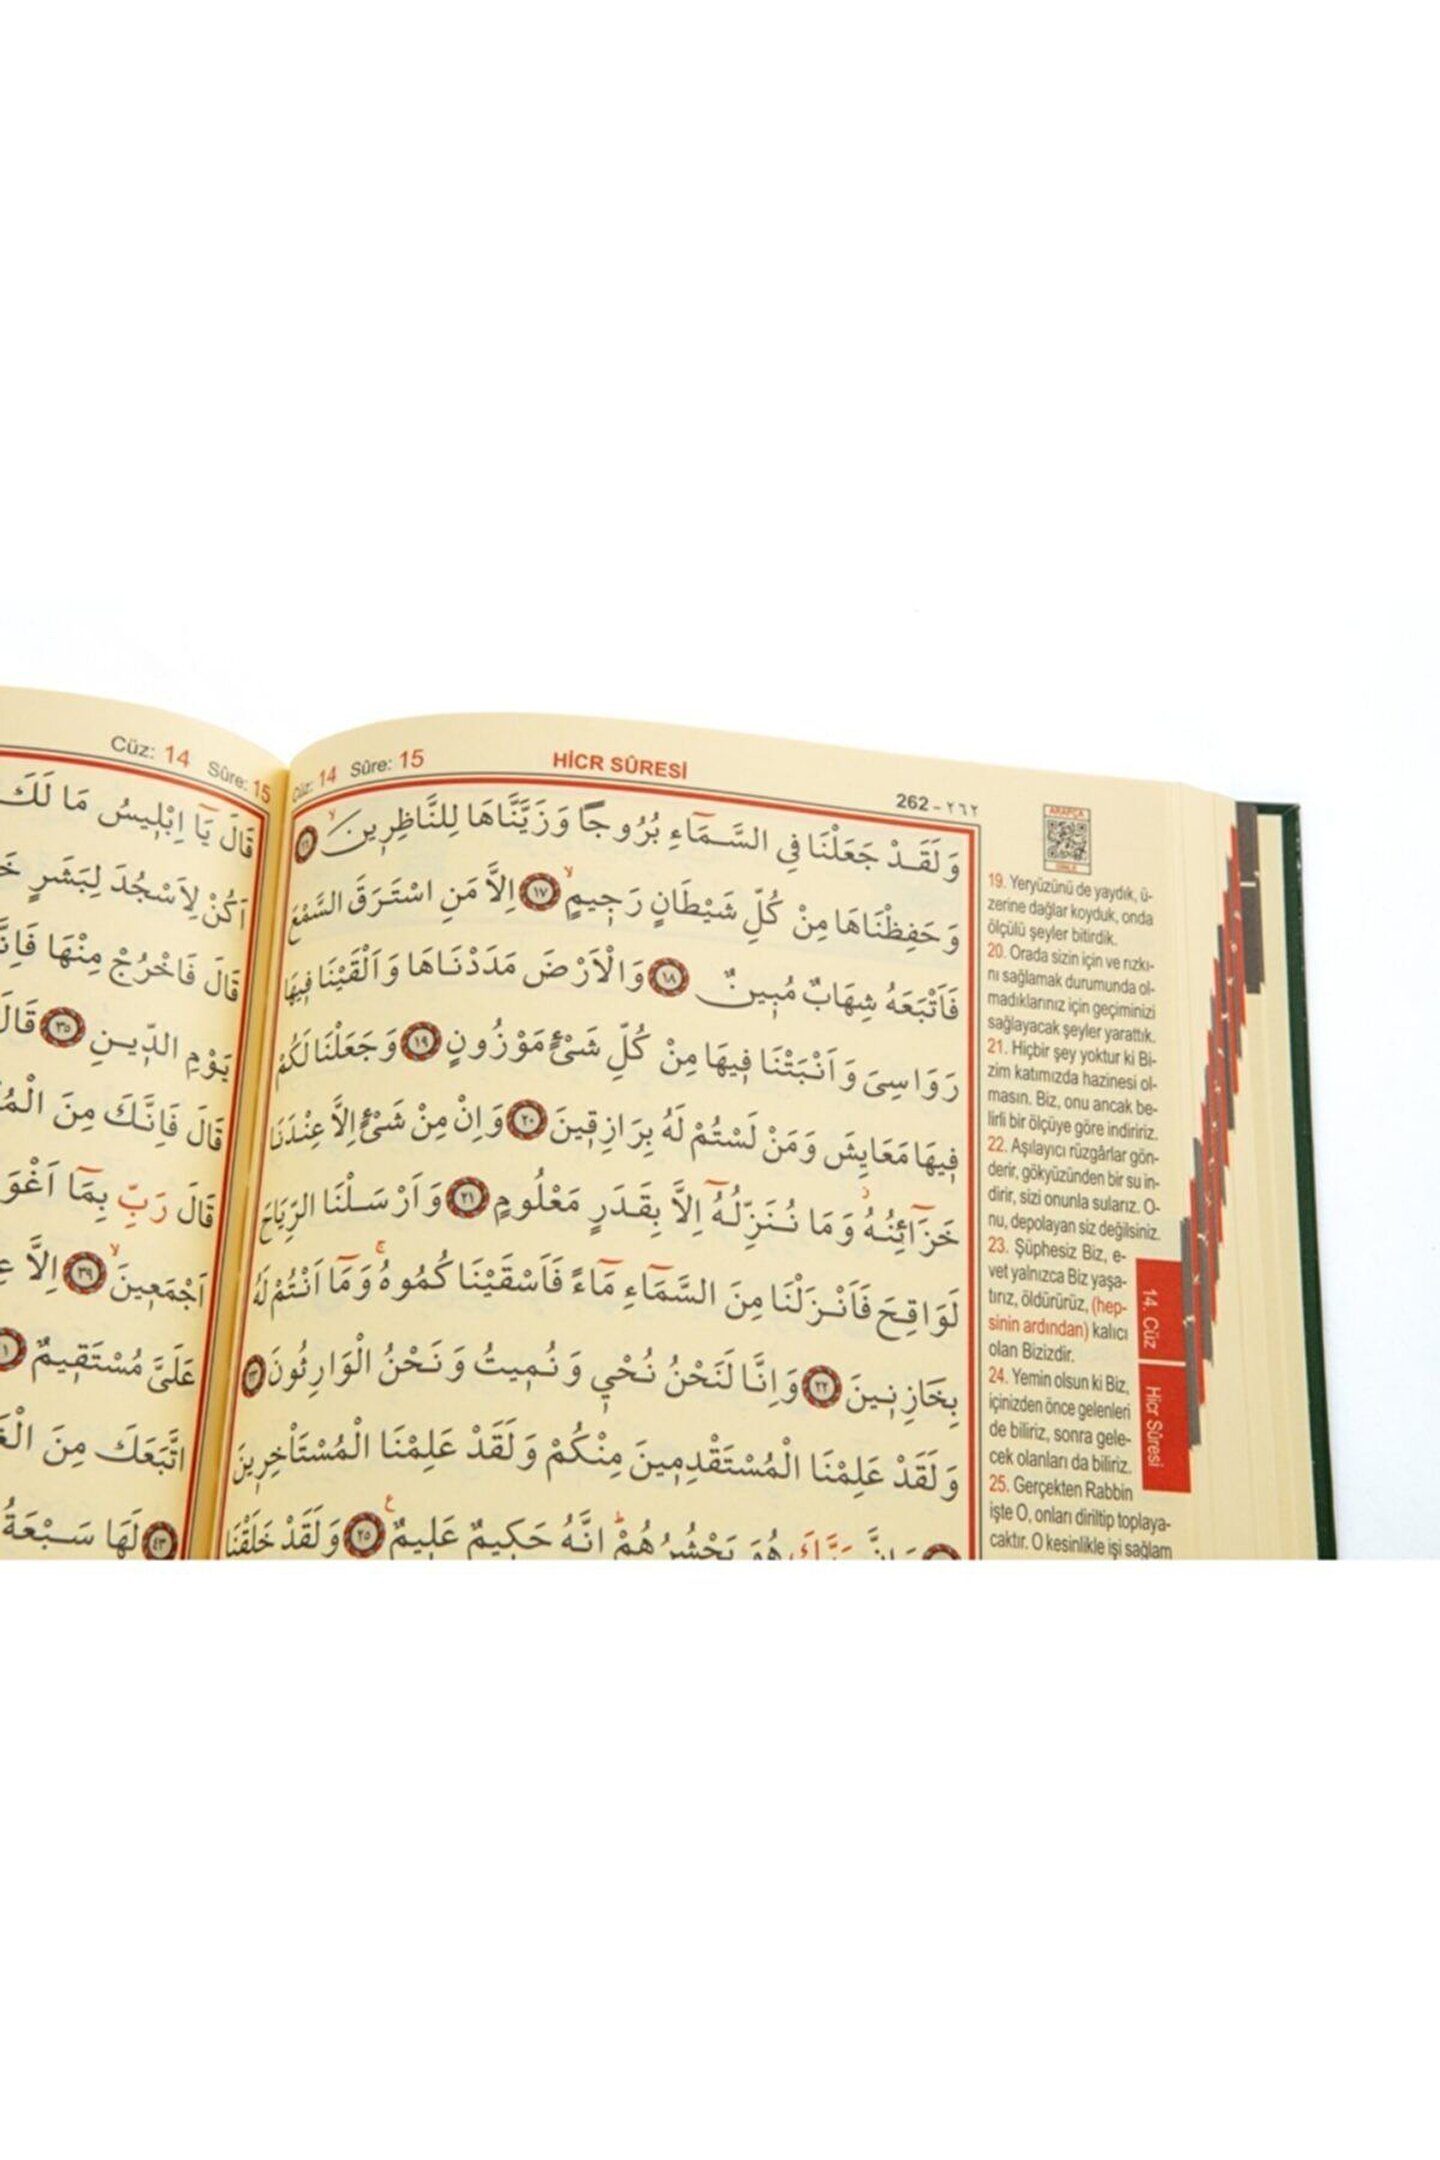 Cüz: 14 Sûre: 15
قَالَ يَٓا اِبْلِيسُ مَا لَكَ
اَكُنْ لِاَسْجُدَ لِبَشَرٍ
قَالَ فَاخْرُجْ مِنْهَا
يَوْمِ الدِّينِ ﴿٣٥﴾ قَالَ
قَالَ فَاِنَّكَ مِنَ
قَالَ رَبِّ بِمَٓا
اَجْمَعِينَۙ ﴿٣٩﴾ اِلَّا
عَلَيَّ مُسْتَقِيمٌ
اتَّبَعَكَ مِنَ
﴿٤٣﴾ لَهَا سَبْعَةُ
Cüz: 14 Sûre: 15
HİCR SÛRESİ
262 - ٢٦٢
وَلَقَدْ جَعَلْنَا فِي السَّمَٓاءِ بُرُوجًا وَزَيَّنَّاهَا لِلنَّاظِرِينَۙ ﴿١٦﴾
وَحَفِظْنَاهَا مِنْ كُلِّ شَيْطَانٍ رَجِيمٍۙ ﴿١٧﴾ اِلَّا مَنِ اسْتَرَقَ السَّمْعَ
فَاَتْبَعَهُ شِهَابٌ مُبِينٌ ﴿١٨﴾ وَالْاَرْضَ مَدَدْنَاهَا وَاَلْقَيْنَا فِيهَا
رَوَاسِيَ وَاَنْبَتْنَا فِيهَا مِنْ كُلِّ شَيْءٍ مَوْزُونٍ ﴿١٩﴾ وَجَعَلْنَا لَكُمْ
فِيهَا مَعَايِشَ وَمَنْ لَسْتُمْ لَهُ بِرَازِقِينَ ﴿٢٠﴾ وَاِنْ مِنْ شَيْءٍ اِلَّا عِنْدَنَا
خَزَٓائِنُهُۘ وَمَا نُنَزِّلُهُٓ اِلَّا بِقَدَرٍ مَعْلُومٍ ﴿٢١﴾ وَاَرْسَلْنَا الرِّيَاحَ
لَوَاقِحَ فَاَنْزَلْنَا مِنَ السَّمَٓاءِ مَٓاءً فَاَسْقَيْنَاكُمُوهُۚ وَمَٓا اَنْتُمْ لَهُ
بِخَازِنِينَ ﴿٢٢﴾ وَاِنَّا لَنَحْنُ نُحْيِي وَنُمِيتُ وَنَحْنُ الْوَارِثُونَ ﴿٢٣﴾
وَلَقَدْ عَلِمْنَا الْمُسْتَقْدِمِينَ مِنْكُمْ وَلَقَدْ عَلِمْنَا الْمُسْتَأْخِرِينَ
وَاِنَّ رَبَّكَ هُوَ يَحْشُرُهُمْۜ اِنَّهُ حَكِيمٌ عَلِيمٌ ﴿٢٥﴾ وَلَقَدْ خَلَقْنَا
ARAPÇA
DİNLE
19. Yeryüzünü de yaydık, ü-
zerine dağlar koyduk, onda
ölçülü şeyler bitirdik.
20. Orada sizin için ve rızkı-
nı sağlamak durumunda ol-
madıklarınız için geçiminizi
sağlayacak şeyler yarattık.
21. Hiçbir şey yoktur ki Bi-
zim katımızda hazinesi ol-
masın. Biz, onu ancak be-
lirli bir ölçüye göre indiririz.
22. Aşılayıcı rüzgârlar gön-
derir, gökyüzünden bir su in-
dirir, sizi onunla sularız. O-
nu, depolayan siz değilsiniz.
23. Şüphesiz Biz, e-
vet yalnızca Biz yaşa-
tırız, öldürürüz, (hep-
sinin ardından) kalıcı
olan Bizizdir.
24. Yemin olsun ki Biz,
içinizden önce gelenleri
de biliriz, sonra gele-
cek olanları da biliriz.
25. Gerçekten Rabbin
işte O, onları diriltip toplaya-
caktır. O kesinlikle işi sağlam
14. Cüz
Hicr Sûresi